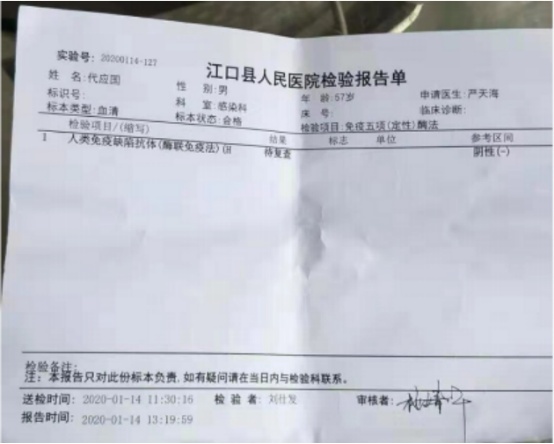 实验号: 20200114-127
江口县人民医院检验报告单
姓 名:代应国 性 别:男 年 龄:67岁 申请医生:严天海
标识号: 科 室:感染科 床 号: 临床诊断:
标本类型:血清 标本状态:合格 检验项目:免疫五项(定性)酶法
检验项目/(缩写) 结果 标志 单位 参考区间
1 人类免疫缺陷抗体(酶联免疫法)(H 待复查 阴性(-)
检验备注:
注: 本报告只对此份标本负责,如有疑问请在当日内与检验科联系。
送检时间: 2020-01-14 11:30:16 检 验 者: 刘仕发 审核者:
报告时间: 2020-01-14 13:19:59